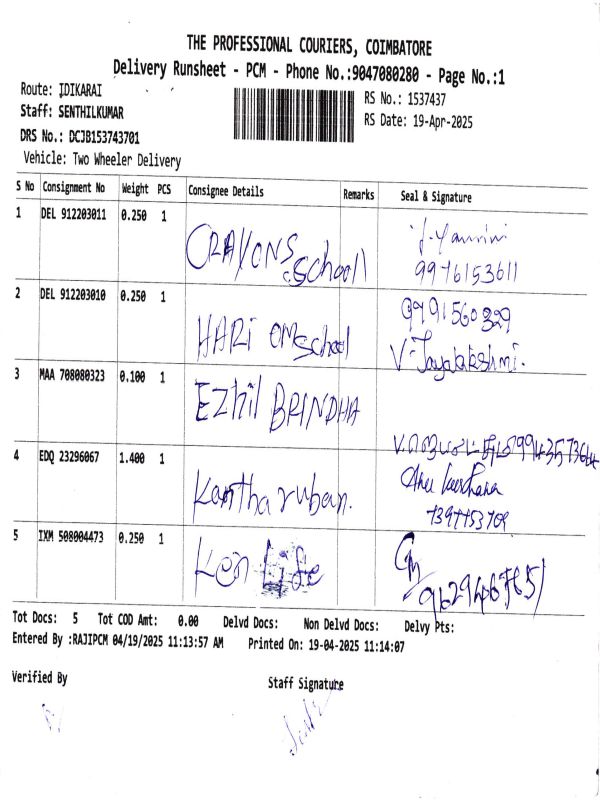 THE PROFESSIONAL COURIERS, COIMBATORE
Delivery Runsheet - PCM - Phone No.:9047080280 - Page No.:1
Route: IDIKARAI
RS No.: 1537437
Staff: SENTHILKUMAR
RS Date: 19-Apr-2025
DRS No.: DCJB153743701
Vehicle: Two Wheeler Delivery
S No Consignment No Weight PCS Consignee Details Remarks Seal & Signature
1 DEL 912203011 0.250 1
CRAYONS school
9976153611
2 DEL 912203010 0.250 1
HARi OM school
9791560329
V. Jayalakshmi.
3 MAA 708080323 0.100 1
EZhil BRINDHA
4 EDQ 23296067 1.400 1
Kantha ruban.
7397753709
5 IXM 508004473 0.250 1
Ken Life
Tot Docs: 5 Tot COD Amt: 0.00 Delvd Docs: Non Delvd Docs: Delvy Pts:
Entered By :RAJIPCM 04/19/2025 11:13:57 AM Printed On: 19-04-2025 11:14:07
Verified By
Staff Signature